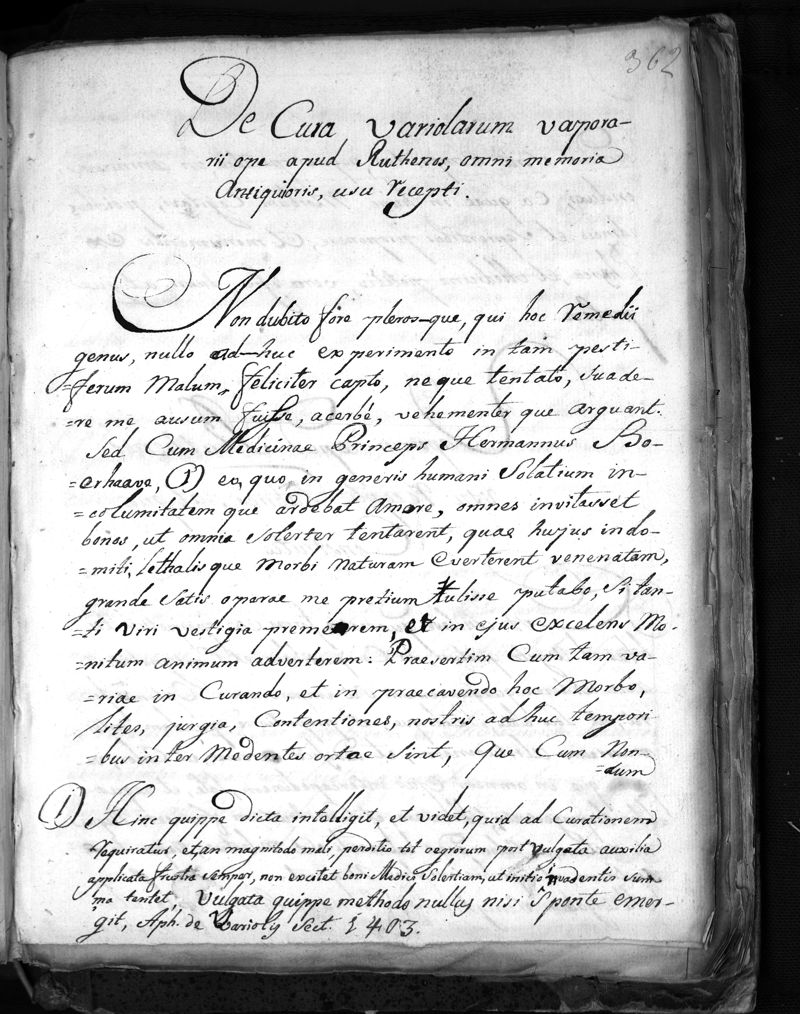 362
De Cura variolarum vapora-
rii ope apud Ruthenos, omni memoria
Antiquioris, usu recepti.
Non dubito fore pleros-que, qui hoc remedii
genus, nullo ad-huc experimento in tam pesti-
=ferum Malum, feliciter capto, neque tentato, suade-
=re me ausum fuisse, acerbè, vehementer que arguant.
Sed Cum Medicinae Princeps Hermannus Bo-
=erhaave, (1) eo, quo in generis humani Solatium in-
=columitatem que ardebat Amore, omnes invitasset
bonos, ut omnia solerter tentarent, quae hujus indo-
=miti, lethalis que Morbi Naturam everterent venenatam,
grande satis operae me pretium tulisse putabo, Si tan-
=ti viri vestigia premerem, et in ejus excelens Mo-
=nitum animum adverterem: Praesertim Cum tam va-
=riae in Curando, et in praecavendo hoc Morbo,
lites, jurgia, Contentiones, nostris adhuc tempori-
=bus inter Medentes ortae Sint, que Cum Non-
=dum
(1) Hinc quippe dicta intelligit, et videt, quid ad Curationem
requiratur, et, an magnitudo mali, perditio tot aegrorum post vulgata auxilia
applicata frustra semper, non excitet boni Medici Solertiam, ut initio invadentis sum-
=ma tentet, Vulgata quippe methodo nullus nisi sponte emer-
=git, Aph. de Variolis Sect. 1403.